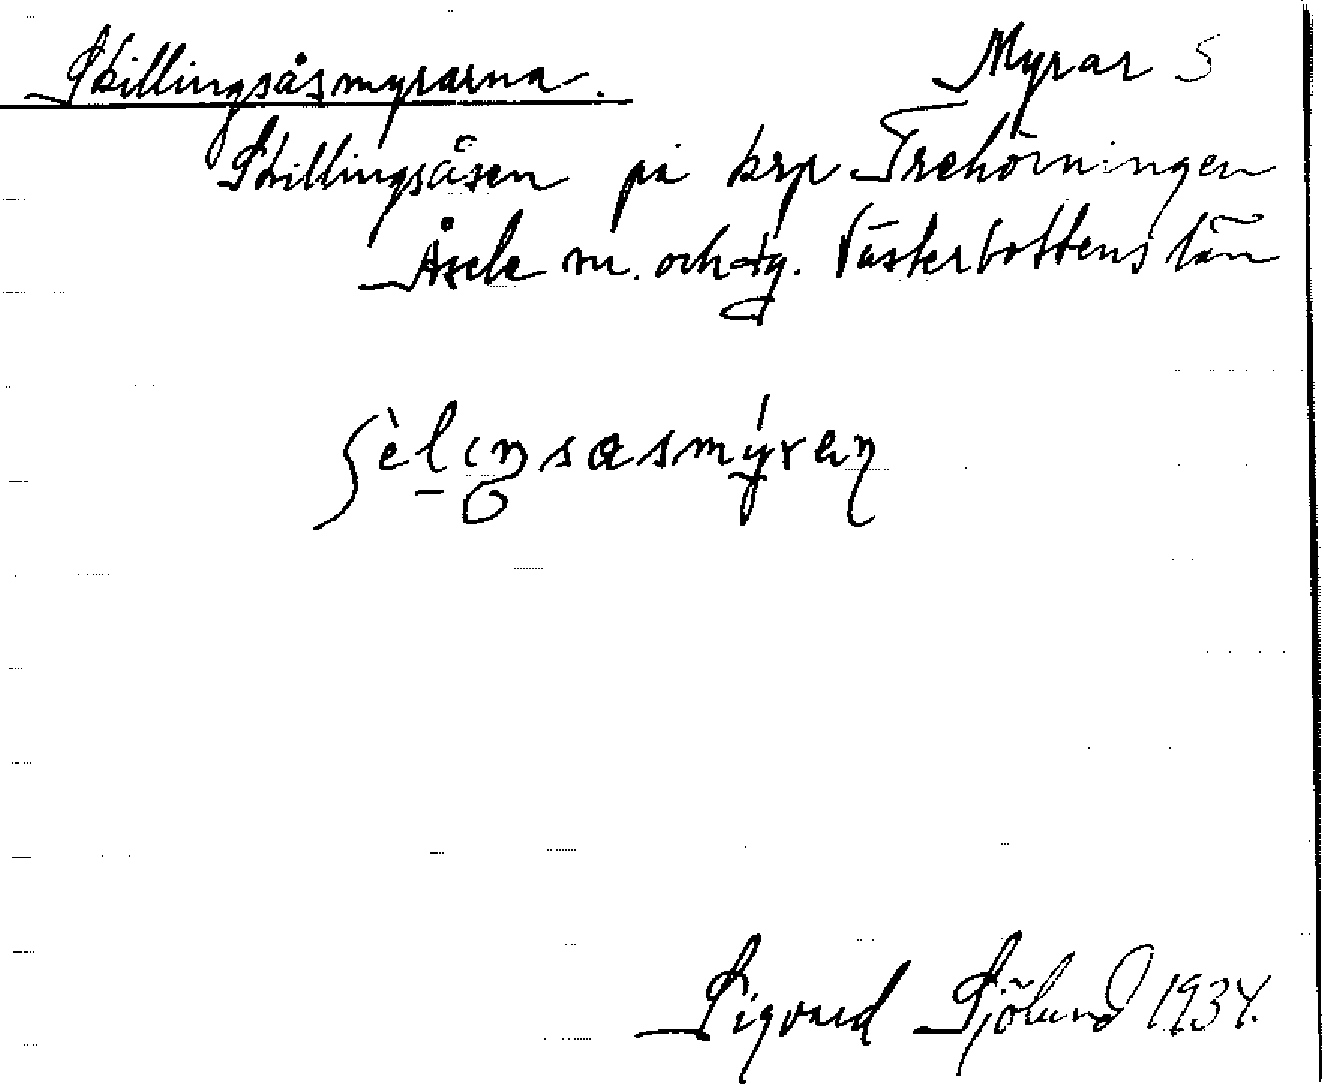 Skillingsåsmyrarna. Myrar S
Skillingsåsen på krp Trehörningen
Åsele sn. och tg. Västerbottens län
ʃèlıŋsasmýran
Sigvard Sjölund 1934.